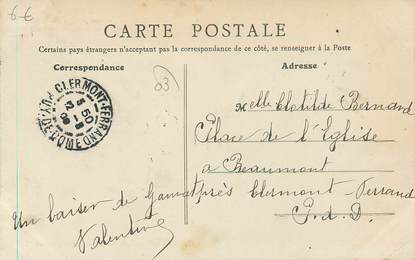 6€
CARTE POSTALE
Certains pays étrangers n'acceptant pas la correspondance de ce côté, se renseigner à la Poste
Correspondance
Adresse
63
CLERMONT-FERRAND PUY-DE-DOME
Melle Clotilde Bernard
Place de l'Eglise
a Beaumont
près Clermont-Ferrand
P.-d-D.
Un baiser de Gannat
Valentine